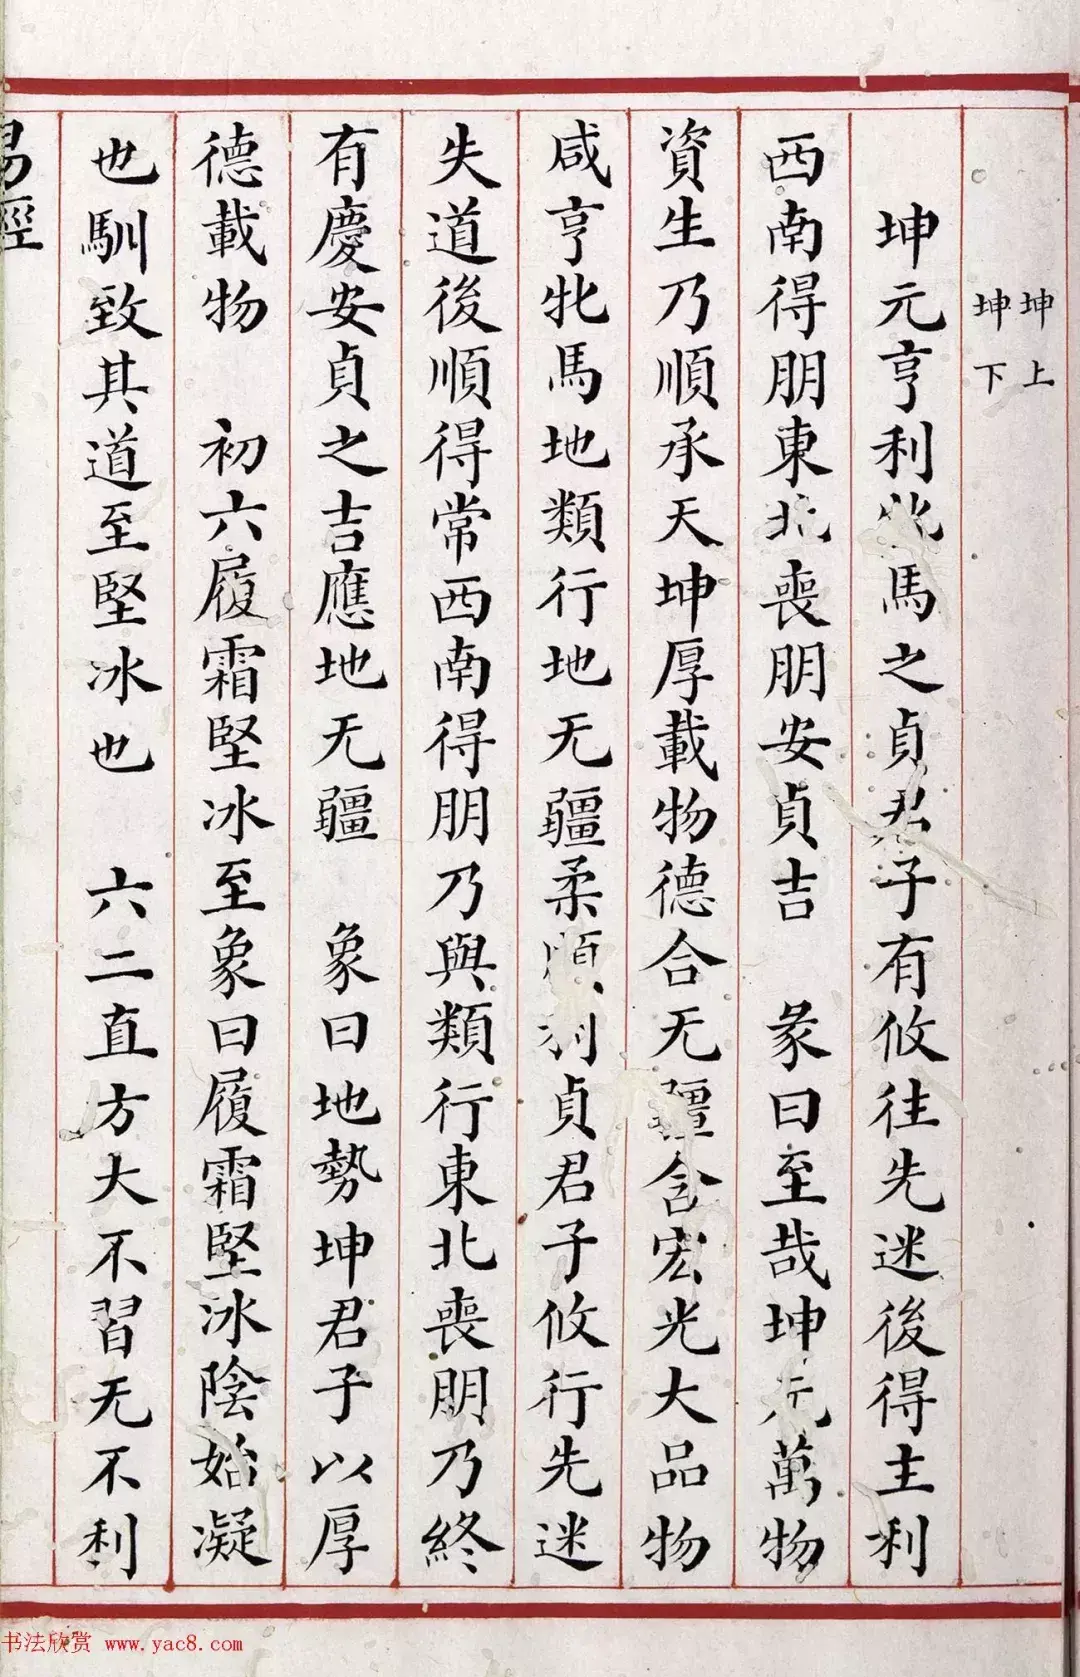 坤上
坤下
坤元亨利牝馬之貞君子有攸往先迷後得主利
西南得朋東北喪朋安貞吉　彖曰至哉坤元萬物
資生乃順承天坤厚載物德合无疆含宏光大品物
咸亨牝馬地類行地无疆柔順利貞君子攸行先迷
失道後順得常西南得朋乃與類行東北喪朋乃終
有慶安貞之吉應地无疆　象曰地勢坤君子以厚
德載物　初六履霜堅冰至象曰履霜堅冰陰始凝
也馴致其道至堅冰也　六二直方大不習无不利
易經
书法欣赏 www.yac8.com